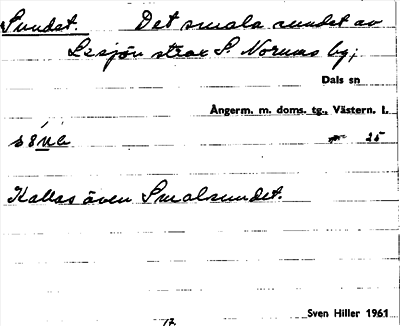 Sundet. Det smala sundet av
Lesjön strax S. Norums by;
Dals sn
Ångerm. m. doms. tg., Västern. l.
25
Kallas även Smalsundet.
Sven Hiller 1961
17